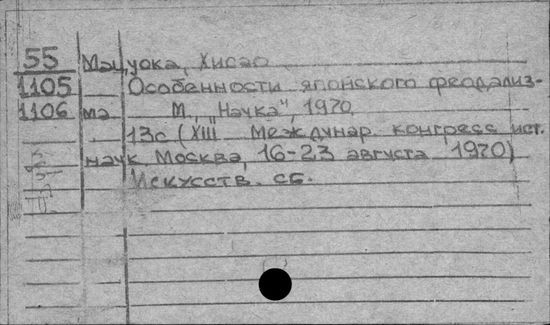 55 Мацуока, Хисао
1105 Особенности японского феодализ-
1106 ма М., "Наука", 1970.
13с (XIII Междунар. конгресс ист.
наук Москва, 16-23 августа 1970)
Искусств. сб.